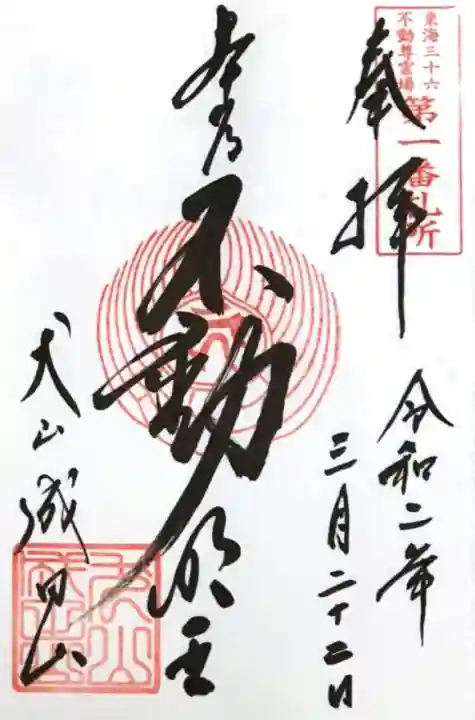 東海三十六
不動尊霊場
第一番札所
奉拝
令和二年
三月二十二日
本尊
不動明王
犬山成田山